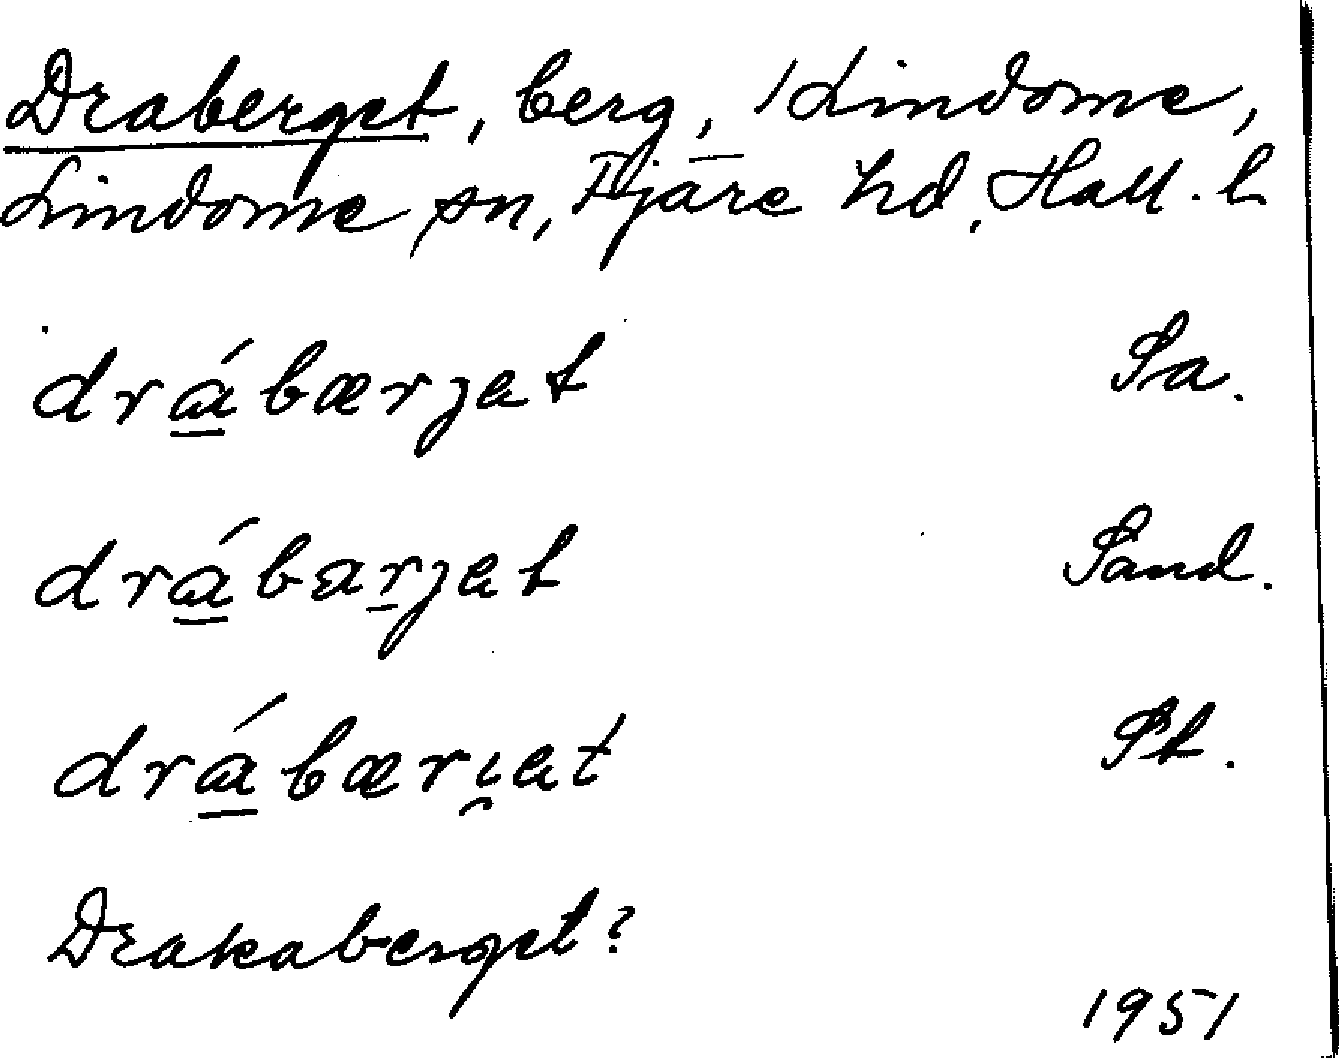 Draberget, berg, Lindome,
Lindome sn, Fjäre hd, Hall. l.
drábærjət Sa.
drábarjət Sand.
drábæri̯ət St.
Drakaberget?
1951